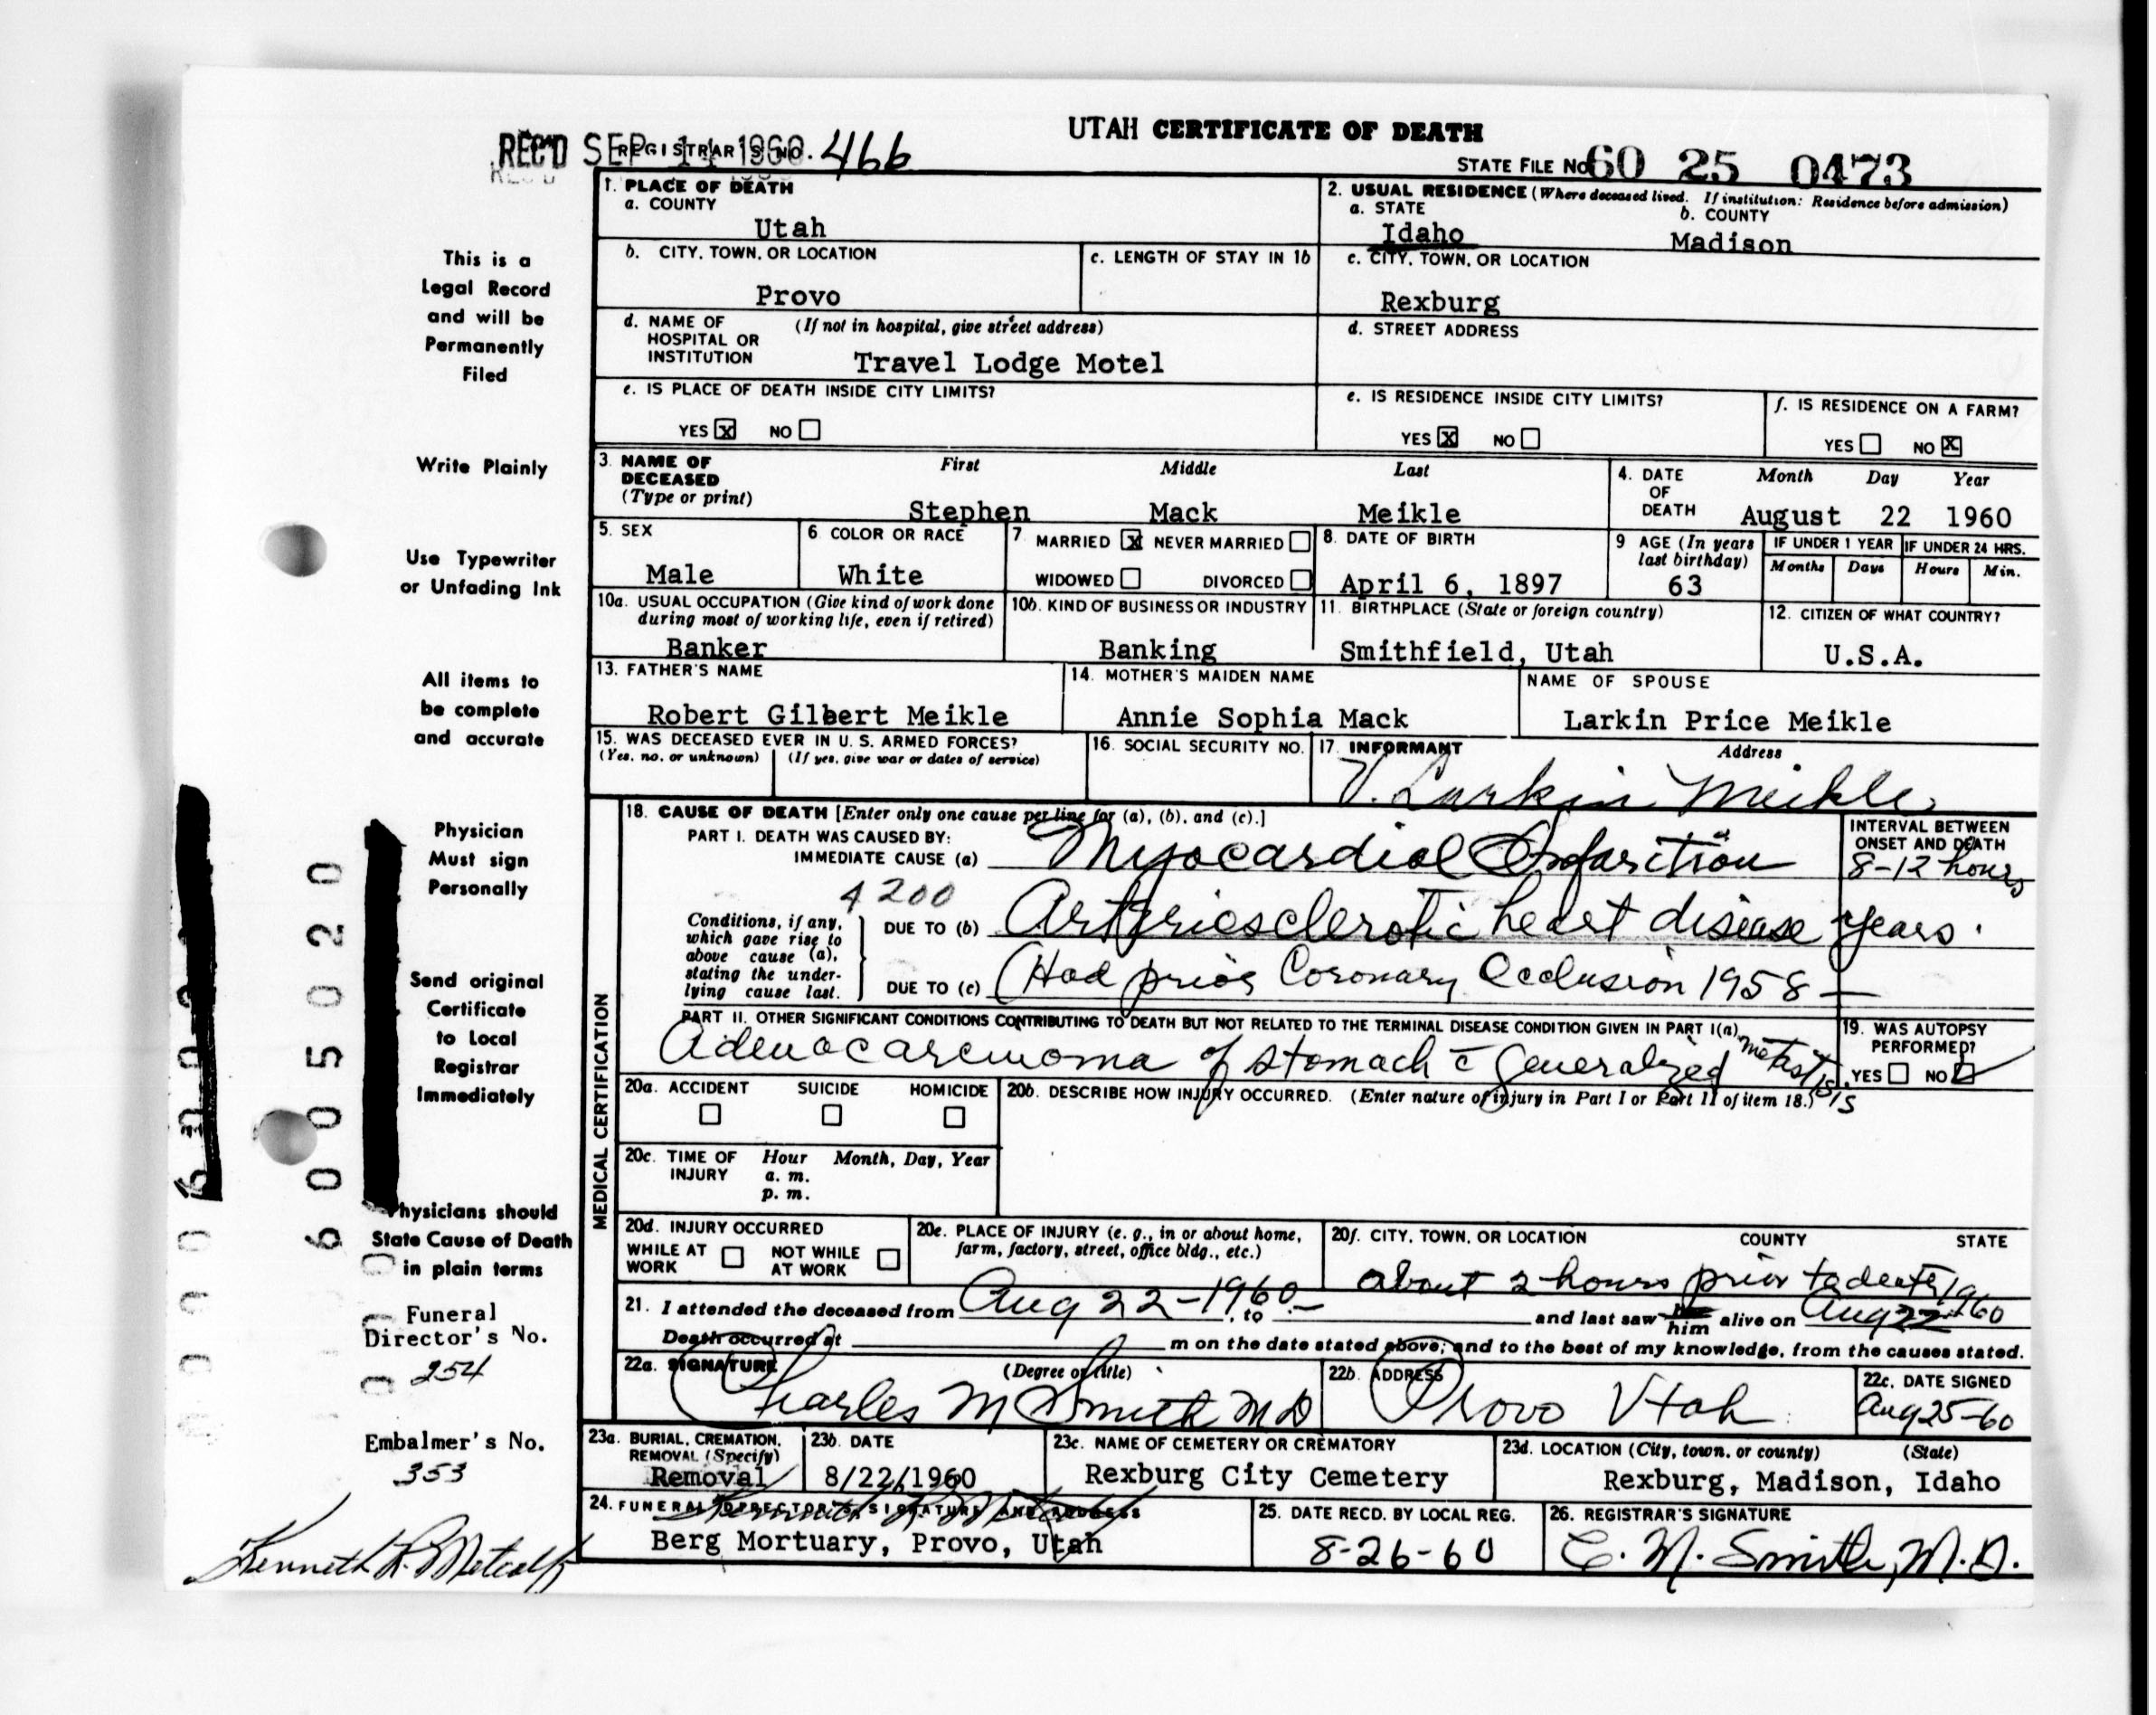 UTAH CERTIFICATE OF DEATH
REC'D SEP 14 1960
REGISTRAR'S NO. 466
STATE FILE NO. 60 25 0473
This is a
Legal Record
and will be
Permanently
Filed
Write Plainly
Use Typewriter
or Unfading Ink
All items to
be complete
and accurate
Physician
Must sign
Personally
Send original
Certificate
to Local
Registrar
Immediately
Physicians should
State Cause of Death
in plain terms
Funeral
Director's No.
254
Embalmer's No.
353
Kenneth R. Metcalf
6005020
1. PLACE OF DEATH
a. COUNTY
Utah
2. USUAL RESIDENCE (Where deceased lived. If institution: Residence before admission)
a. STATE
Idaho
b. COUNTY
Madison
b. CITY, TOWN, OR LOCATION
Provo
c. LENGTH OF STAY IN 1b
c. CITY, TOWN, OR LOCATION
Rexburg
d. NAME OF HOSPITAL OR INSTITUTION
(If not in hospital, give street address)
Travel Lodge Motel
d. STREET ADDRESS
e. IS PLACE OF DEATH INSIDE CITY LIMITS?
YES X NO
e. IS RESIDENCE INSIDE CITY LIMITS?
YES X NO
f. IS RESIDENCE ON A FARM?
YES NO X
3. NAME OF DECEASED (Type or print)
First Middle Last
Stephen Mack Meikle
4. DATE OF DEATH
Month Day Year
August 22 1960
5. SEX
Male
6 COLOR OR RACE
White
7 MARRIED X NEVER MARRIED
WIDOWED DIVORCED
8. DATE OF BIRTH
April 6, 1897
9 AGE (In years last birthday)
63
IF UNDER 1 YEAR
Months Days
IF UNDER 24 HRS.
Hours Min.
10a. USUAL OCCUPATION (Give kind of work done during most of working life, even if retired)
Banker
10b. KIND OF BUSINESS OR INDUSTRY
Banking
11. BIRTHPLACE (State or foreign country)
Smithfield, Utah
12. CITIZEN OF WHAT COUNTRY?
U.S.A.
13. FATHER'S NAME
Robert Gilbert Meikle
14. MOTHER'S MAIDEN NAME
Annie Sophia Mack
NAME OF SPOUSE
Larkin Price Meikle
15. WAS DECEASED EVER IN U. S. ARMED FORCES?
(Yes, no, or unknown) (If yes, give war or dates of service)
16. SOCIAL SECURITY NO.
17. INFORMANT Address
V. Larkin Meikle
MEDICAL CERTIFICATION
18. CAUSE OF DEATH [Enter only one cause per line for (a), (b), and (c).]
PART I. DEATH WAS CAUSED BY:
IMMEDIATE CAUSE (a) Myocardial Infarction
INTERVAL BETWEEN ONSET AND DEATH
8-12 hours
4200
Conditions, if any, which gave rise to above cause (a), stating the underlying cause last.
DUE TO (b) Arteriosclerotic heart disease years.
DUE TO (c) (Had prior Coronary Occlusion 1958 —
PART II. OTHER SIGNIFICANT CONDITIONS CONTRIBUTING TO DEATH BUT NOT RELATED TO THE TERMINAL DISEASE CONDITION GIVEN IN PART I(a)
Adenocarcinoma of stomach c̄ generalized metastasis
19. WAS AUTOPSY PERFORMED?
YES NO
20a. ACCIDENT SUICIDE HOMICIDE
20b. DESCRIBE HOW INJURY OCCURRED. (Enter nature of injury in Part I or Part II of item 18.)
20c. TIME OF INJURY
Hour Month, Day, Year
a. m.
p. m.
20d. INJURY OCCURRED
WHILE AT WORK NOT WHILE AT WORK
20e. PLACE OF INJURY (e. g., in or about home, farm, factory, street, office bldg., etc.)
20f. CITY, TOWN, OR LOCATION COUNTY STATE
about 2 hours prior to death 1960
21. I attended the deceased from Aug 22-1960-, to and last saw him alive on Aug 22
Death occurred at m on the date stated above; and to the best of my knowledge, from the causes stated.
22a. SIGNATURE (Degree or title)
Charles M Smith MD
22b. ADDRESS
Provo Utah
22c. DATE SIGNED
Aug 25-60
23a. BURIAL, CREMATION, REMOVAL (Specify)
Removal
23b. DATE
8/22/1960
23c. NAME OF CEMETERY OR CREMATORY
Rexburg City Cemetery
23d. LOCATION (City, town, or county) (State)
Rexburg, Madison, Idaho
24. FUNERAL DIRECTOR'S SIGNATURE AND ADDRESS
Berg Mortuary, Provo, Utah
25. DATE RECD. BY LOCAL REG.
8-26-60
26. REGISTRAR'S SIGNATURE
C. M. Smith, M.D.